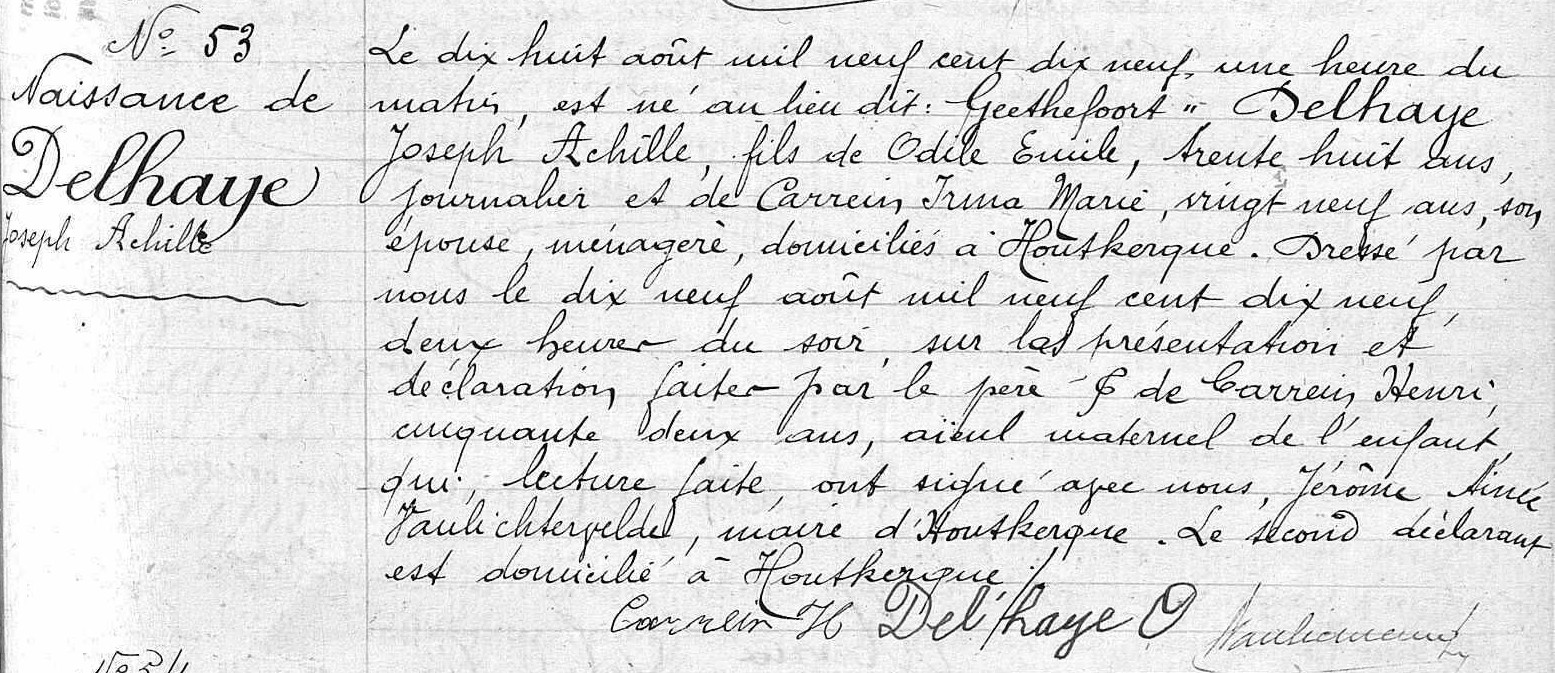 N° 53
Naissance de
Delhaye
Joseph Achille
Le dix huit août mil neuf cent dix neuf, une heure du
matin, est né au lieu dit : Geethefoort " Delhaye
Joseph Achille, fils de Odile Emile, trente huit ans,
journalier et de Carrein Irma Marie, vingt neuf ans, son
épouse, ménagère, domiciliés à Houtkerque. Dressé par
nous le dix neuf août mil neuf cent dix neuf,
deux heures du soir, sur la présentation et
déclaration faites par le père & de Carrein Henri,
cinquante deux ans, aïeul maternel de l'enfant,
qui, lecture faite, ont signé avec nous, Jérôme Aimé
Vanlichtervelde, maire d'Houtkerque. Le second déclarant
est domicilié à Houtkerque ./.
Carrein H Delhaye O
N° 54